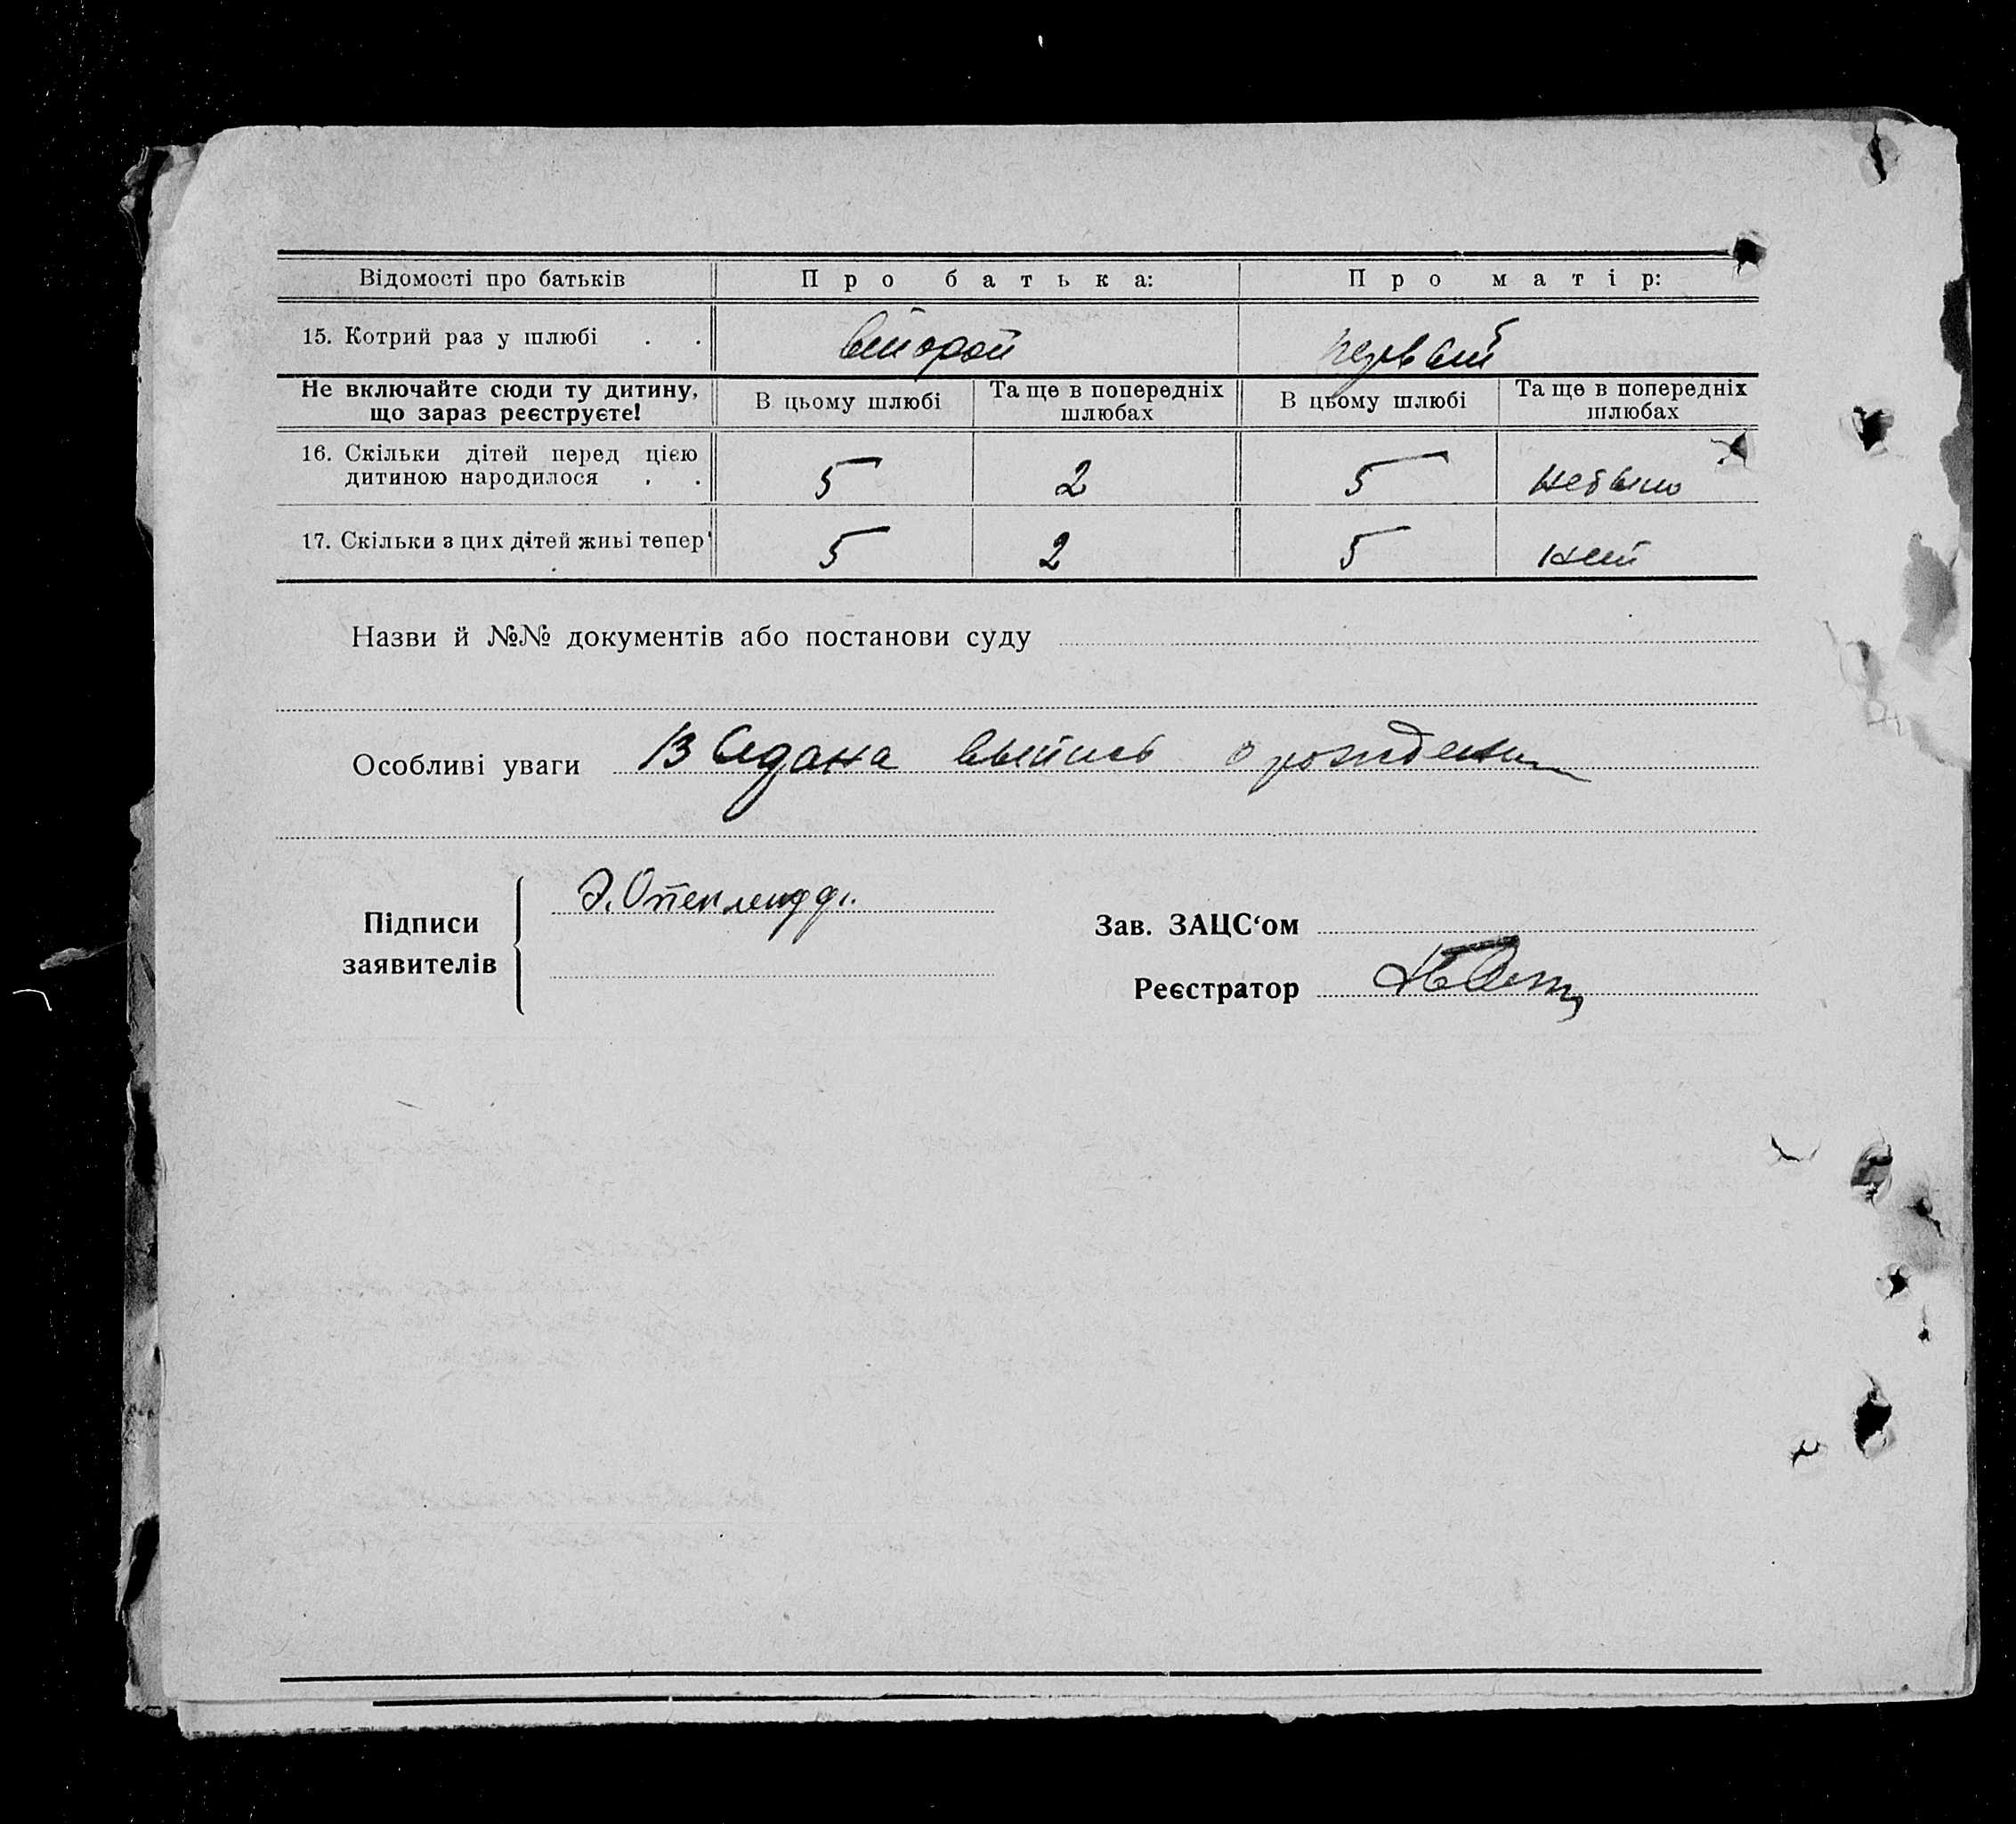 Відомості про батьків Про батька: Про матір:
15. Котрий раз у шлюбі . . второй первый
Не включайте сюди ту дитину, що зараз реєструєте! В цьому шлюбі Та ще в попередніх шлюбах В цьому шлюбі Та ще в попередніх шлюбах
16. Скільки дітей перед цією дитиною народилося . . 5 2 5 небыло
17. Скільки з цих дітей живі тепер 5 2 5 нет
Назви й №№ документів або постанови суду
Особливі уваги о рождении
Підписи заявителів
Зав. ЗАЦС‘ом
Реєстратор